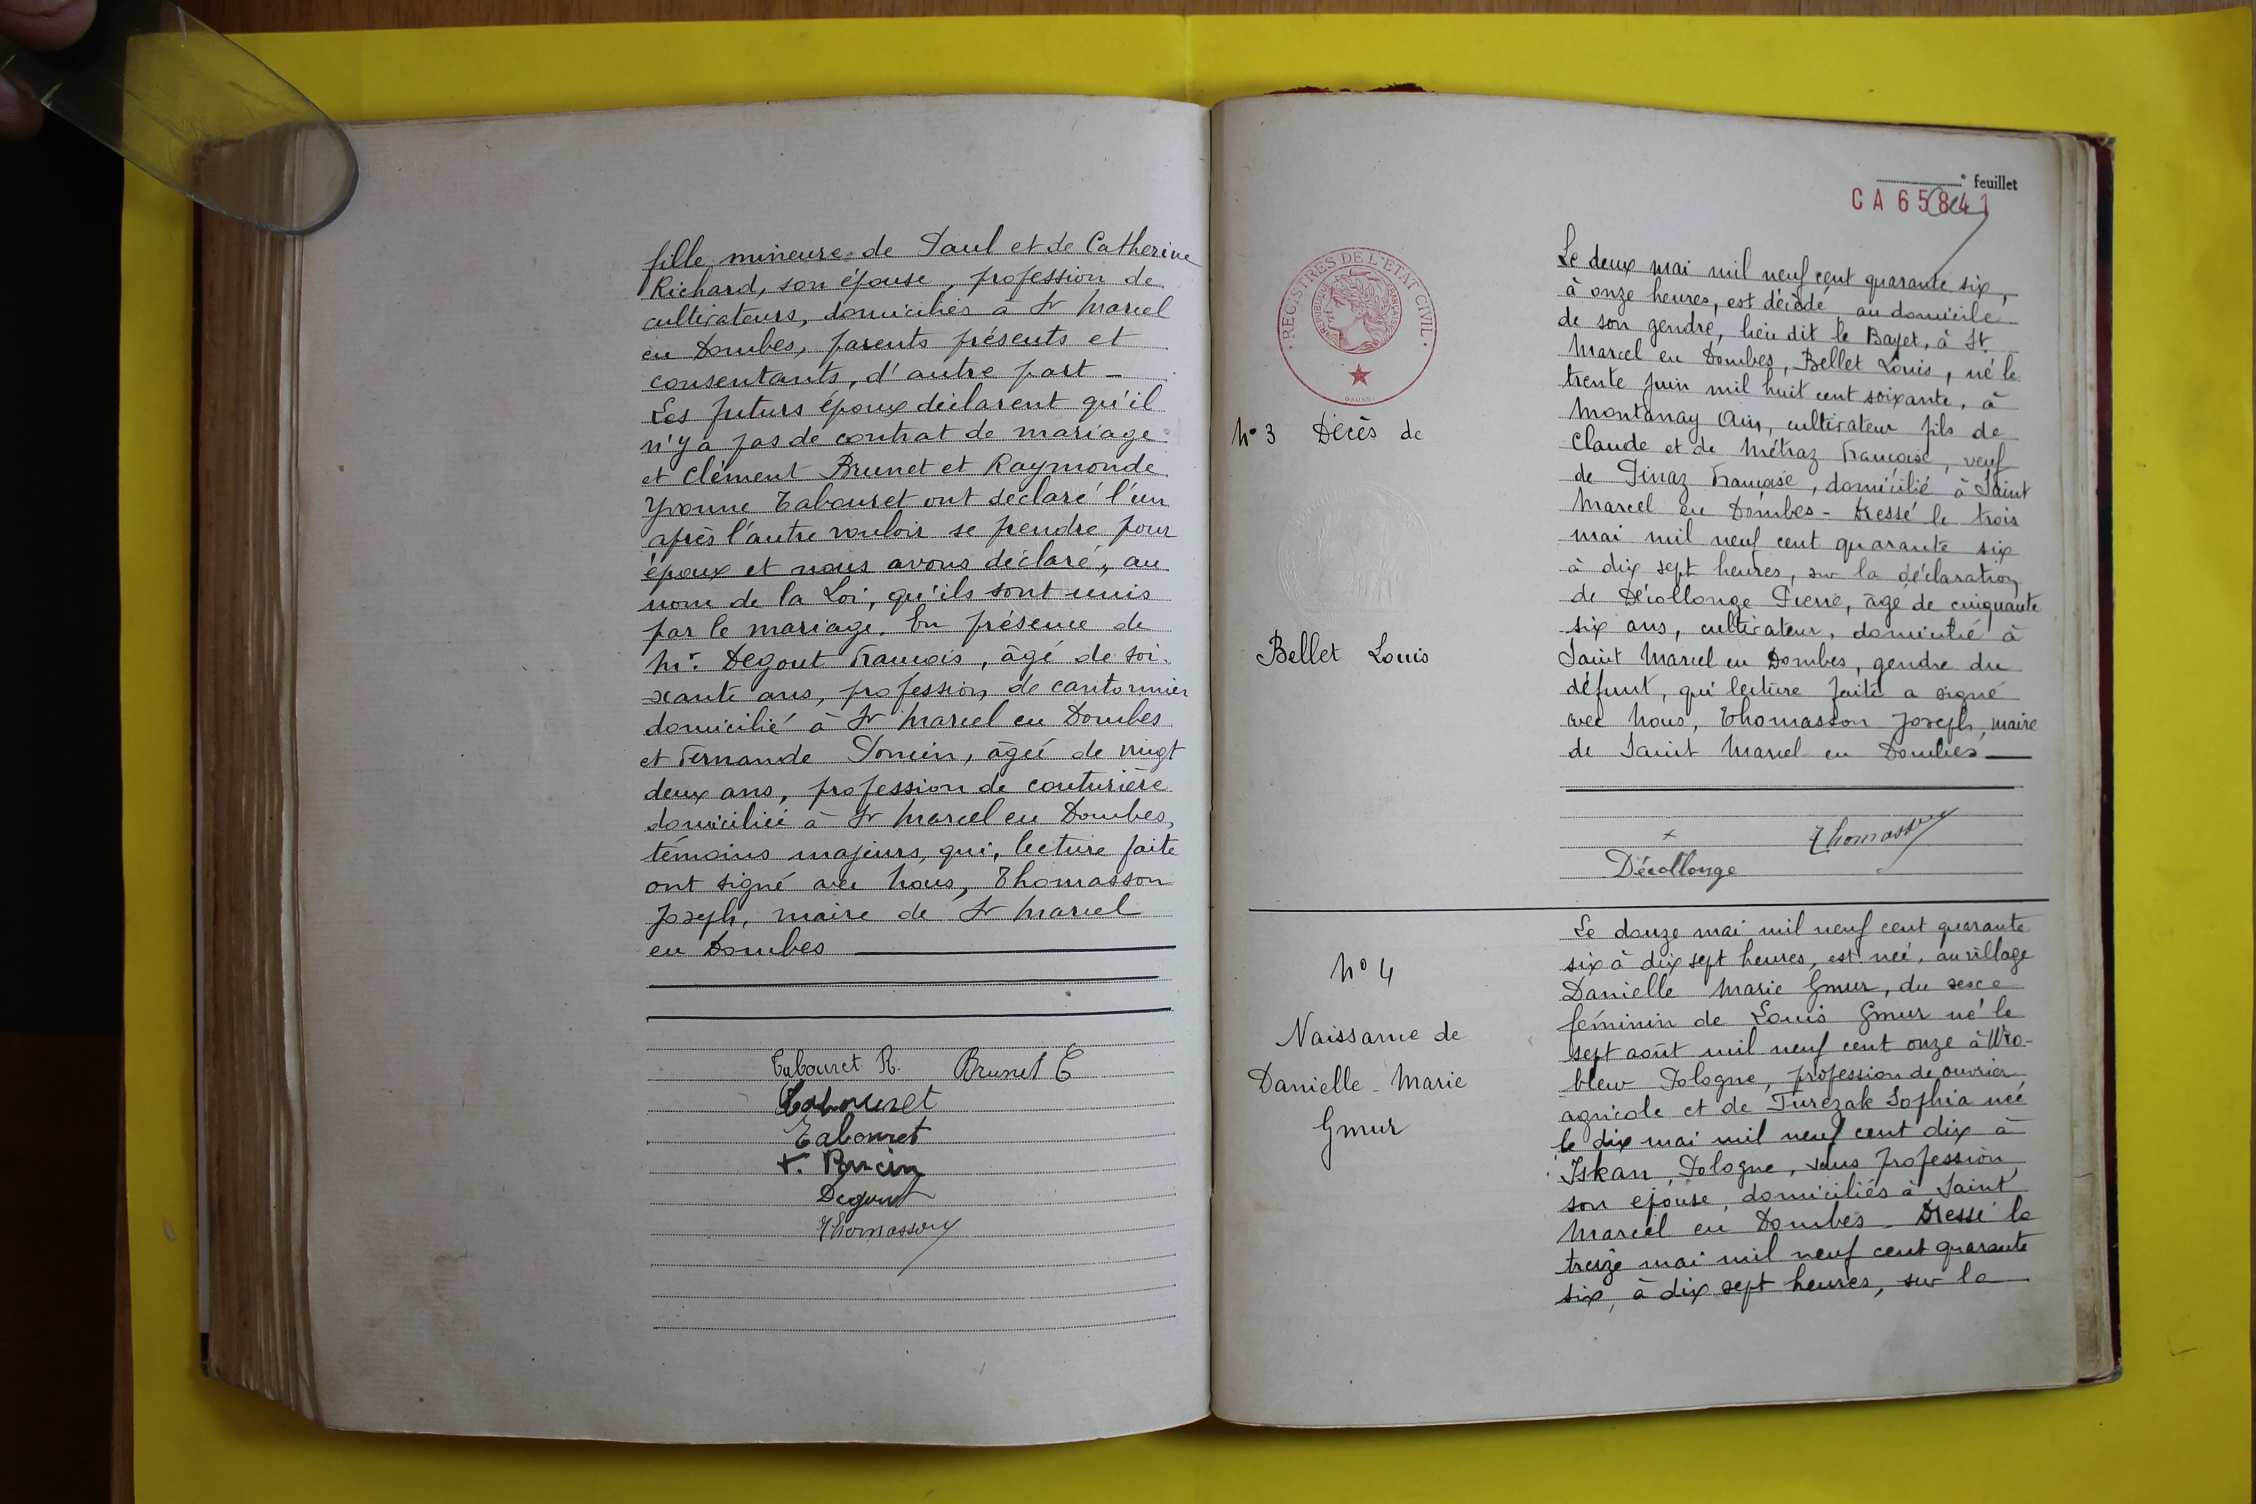 fille mineure de Paul et de Catherine
Richard, son épouse, profession de
cultivateurs, domiciliés à St Marcel
en Dombes, parents présents et
consentants, d'autre part -
Les futurs époux déclarent qu'il
n'y a pas de contrat de mariage
et Clément Brunet et Raymonde
Yvonne Tabouret ont déclaré l'un
après l'autre vouloir se prendre pour
époux et nous avons déclaré, au
nom de la Loi, qu'ils sont unis
par le mariage. En présence de
Mr. Degout François, âgé de soi-
xante ans, profession de cantonnier
domicilié à St Marcel en Dombes
et Fernande Poncin, âgée de vingt
deux ans, profession de couturière
domiciliée à St Marcel en Dombes,
témoins majeurs, qui, lecture faite
ont signé avec Nous, Thomasson
Joseph, maire de St Marcel
en Dombes
Tabouret R. Brunet C
Tabouret
Tabouret
F. Poncin
Degout
Thomasson
° feuillet
CA 65841
REGISTRES DE L'ETAT CIVIL
N° 3 Décès de
Bellet Louis
Le deux mai mil neuf cent quarante six,
à onze heures, est décédé, au domicile
de son gendre, lieu dit le Bayet, à St
Marcel en Dombes, Bellet Louis, né le
trente juin mil huit cent soixante, à
Montanay Ain, cultivateur fils de
Claude et de Métraz Françoise, veuf
de Pinaz Françoise, domicilié à Saint
Marcel en Dombes - Dressé le trois
mai mil neuf cent quarante six
à dix sept heures, sur la déclaration
de Décollonge Pierre, âgé de cinquante
six ans, cultivateur, domicilié à
Saint Marcel en Dombes, gendre du
défunt, qui lecture faite a signé
avec Nous, Thomasson Joseph, maire
de Saint Marcel en Dombes
Décollonge Thomasson
N° 4
Naissance de
Danielle - Marie
Gmur
Le douze mai mil neuf cent quarante
six à dix sept heures, est née, au village
Danielle Marie Gmur, du sexe
féminin de Louis Gmur né le
sept août mil neuf cent onze à Wro-
blew Pologne, profession de ouvrier
agricole et de Turczak Sophia née
le dix mai mil neuf cent dix à
Iskan, Pologne, sans profession,
son épouse, domiciliés à Saint
Marcel en Dombes - Dressé le
treize mai mil neuf cent quarante
six, à dix sept heures, sur la